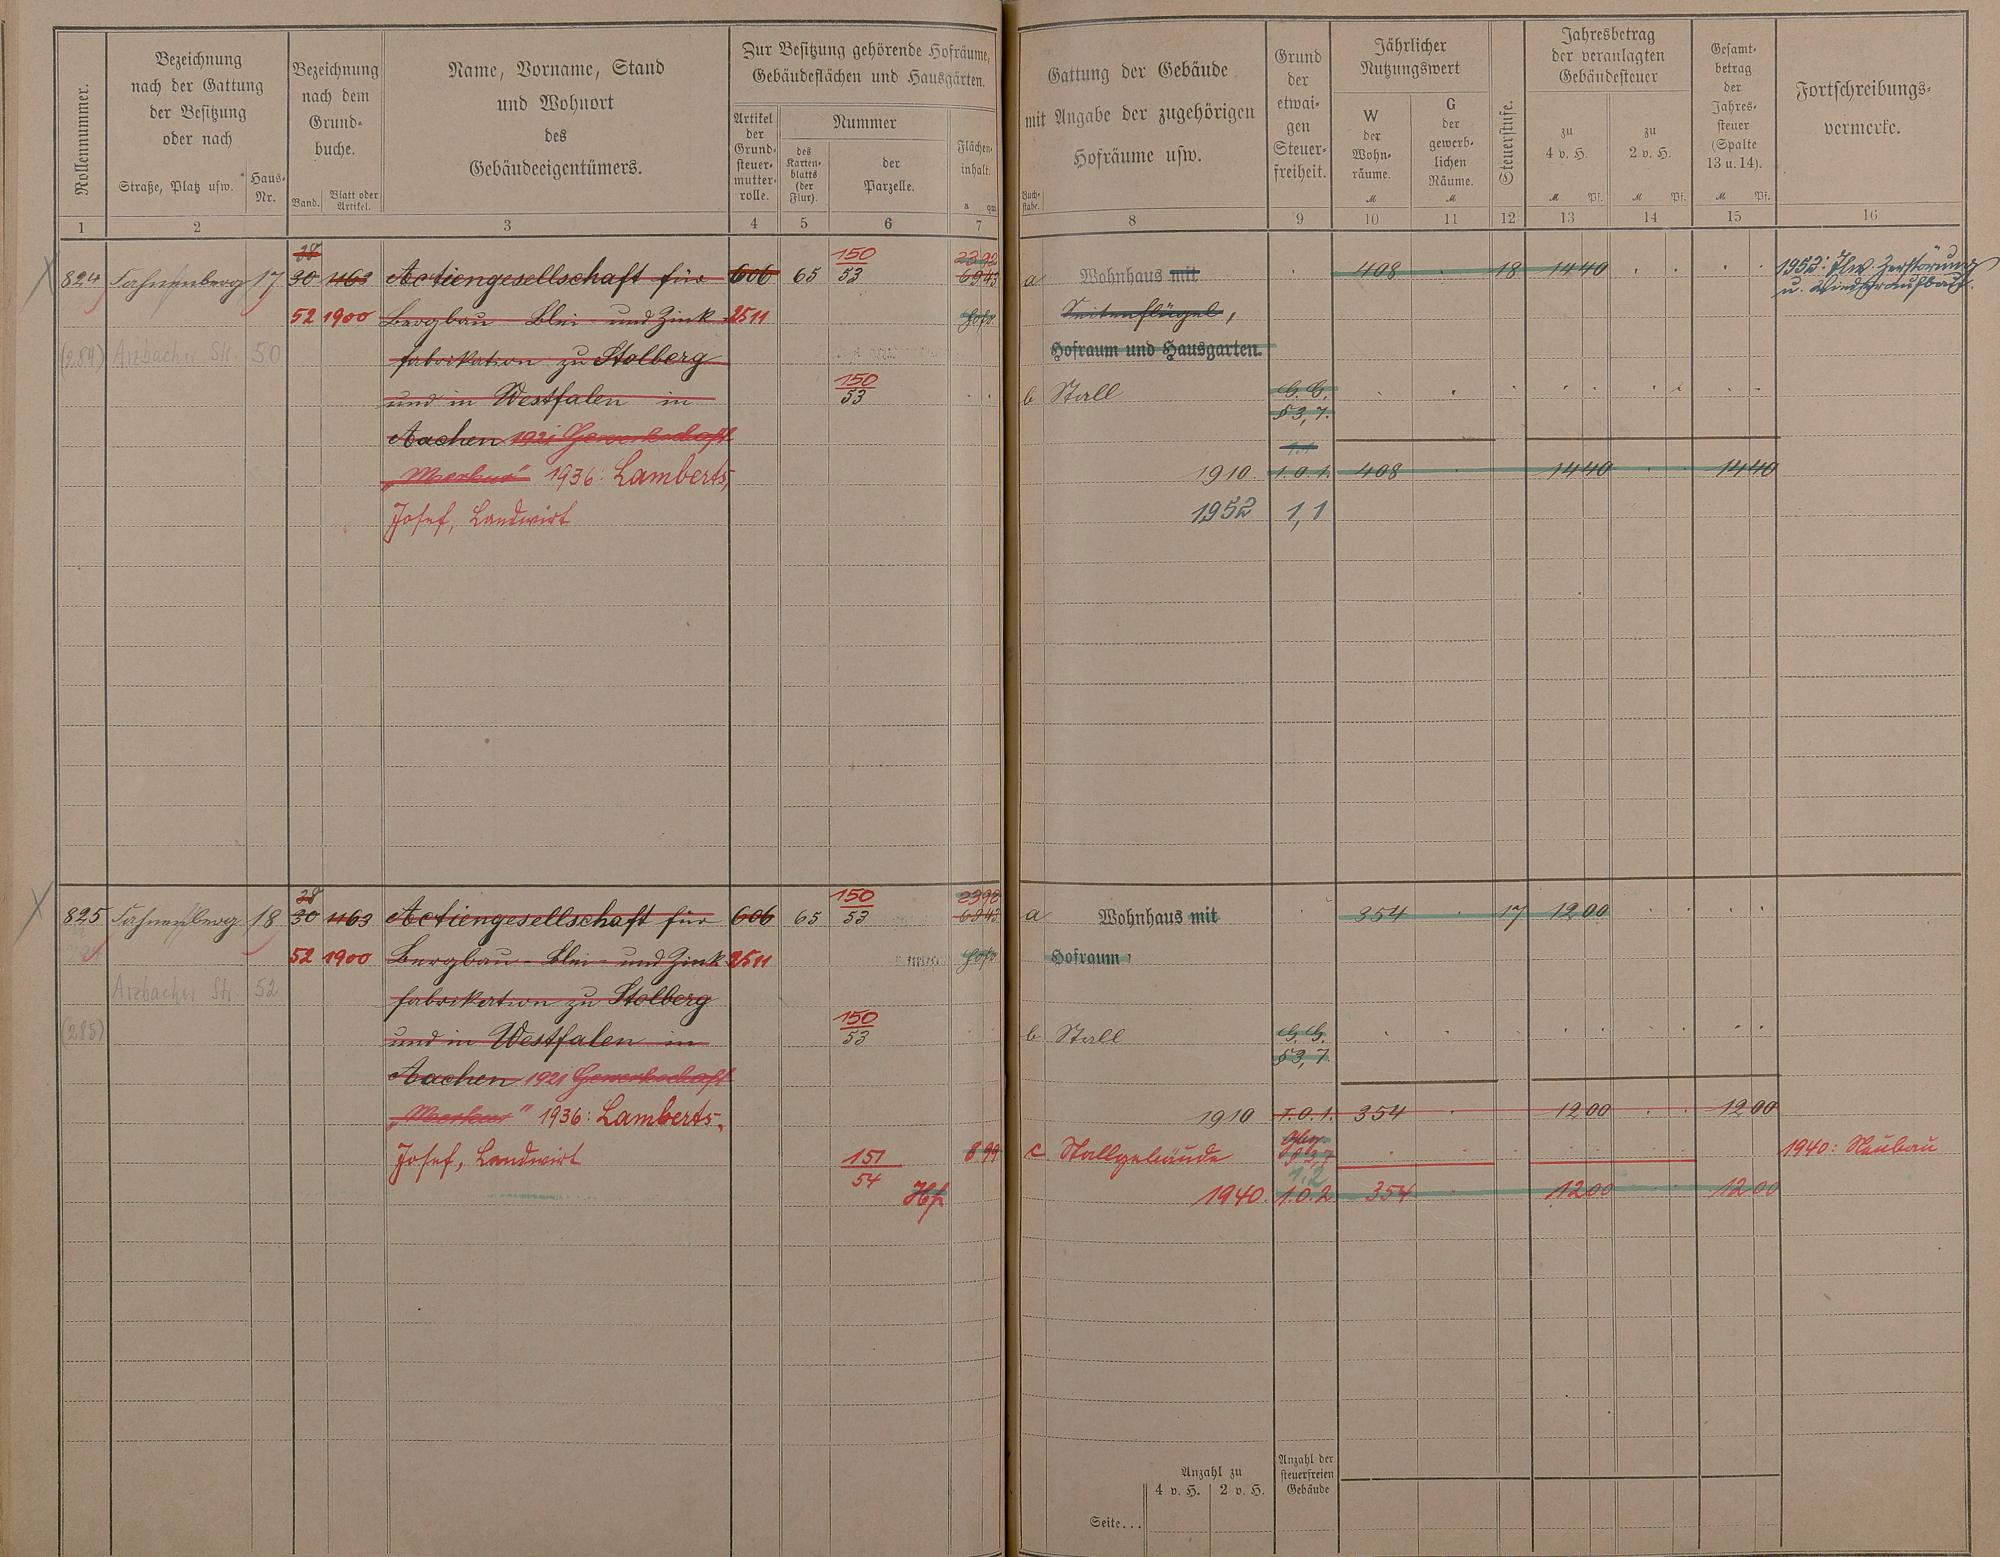 Rollennummer.
Bezeichnung
nach der Gattung
der Besitzung
oder nach
Straße, Platz usw.
Haus-
Nr.
Bezeichnung
nach dem
Grund-
buche.
Band.
Blatt oder
Artikel.
Name, Vorname, Stand
und Wohnort
des
Gebäudeeigentümers.
Zur Besitzung gehörende Hofräume,
Gebäudeflächen und Hausgärten.
Artikel
der
Grund-
steuer-
mutter-
rolle.
Nummer
des
Karten-
blatts
(der
Flur).
der
Parzelle.
Flächen-
inhalt.
a qm
1 2 3 4 5 6 7
Gattung der Gebäude
mit Angabe der zugehörigen
Hofräume usw.
Buch-
stabe.
Grund
der
etwai-
gen
Steuer-
freiheit.
Jährlicher
Nutzungswert
W
der
Wohn-
räume.
M
G
der
gewerb-
lichen
Räume.
M
Steuerstufe.
Jahresbetrag
der veranlagten
Gebäudesteuer
zu
4 v. H.
M Pf.
zu
2 v. H.
M Pf.
Gesamt-
betrag
der
Jahres-
steuer
(Spalte
13 u. 14).
M Pf.
Fortschreibungs-
vermerke.
8 9 10 11 12 13 14 15 16
28 150 2392
824 Fahnenberg 17 30 1163 Actiengesellschaft für 606 65 53 6943
52 1900 Bergbau Blei- und Zink- 2511 Hofr.
(284) Arzbacher Str. 50 fabrikation zu Stolberg
und in Westfalen in 150
53
Aachen 1921 Gewerkschaft
"Merkur" 1936: Lamberts,
Josef, Landwirt
a Wohnhaus mit 408 18 14 40
1952: Zerstörung
u. Wiederaufbau.
Seitenflügel,
Hofraum und Hausgarten.
b Stall G. G.
§3,7.
1.1
1910 1.0.1. 408 14 40 14 40
1952 1,1
28 150 2392
825 Fahnenberg 18 30 1163 Actiengesellschaft für 606 65 53 6943
52 1900 Bergbau- Blei- und Zink- 2511 Hofr.
Arzbacher Str. 52 fabrikation zu Stolberg
(285) und in Westfalen in 150
53
Aachen 1921 Gewerkschaft
"Merkur" 1936: Lamberts,
Josef, Landwirt 151 8 99
54
Hfr
a Wohnhaus mit 354 17 12 00
Hofraum,
b Stall G. G.
§3,7.
1910 1.0.1. 354 12 00 12 00
c Stallgebäude 1940: Neubau
1.2
1940. 1.0.2 354 12 00 12 00
Anzahl zu
4 v. H. 2 v. H.
Anzahl der
steuerfreien
Gebäude
Seite...